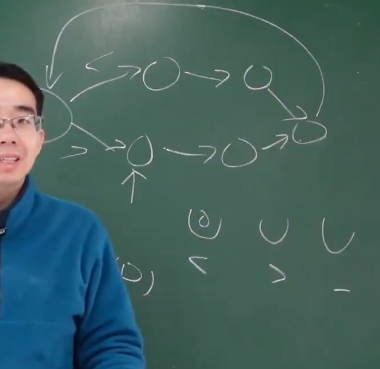 <
>
∪ ∪ ∪
< > -
0)